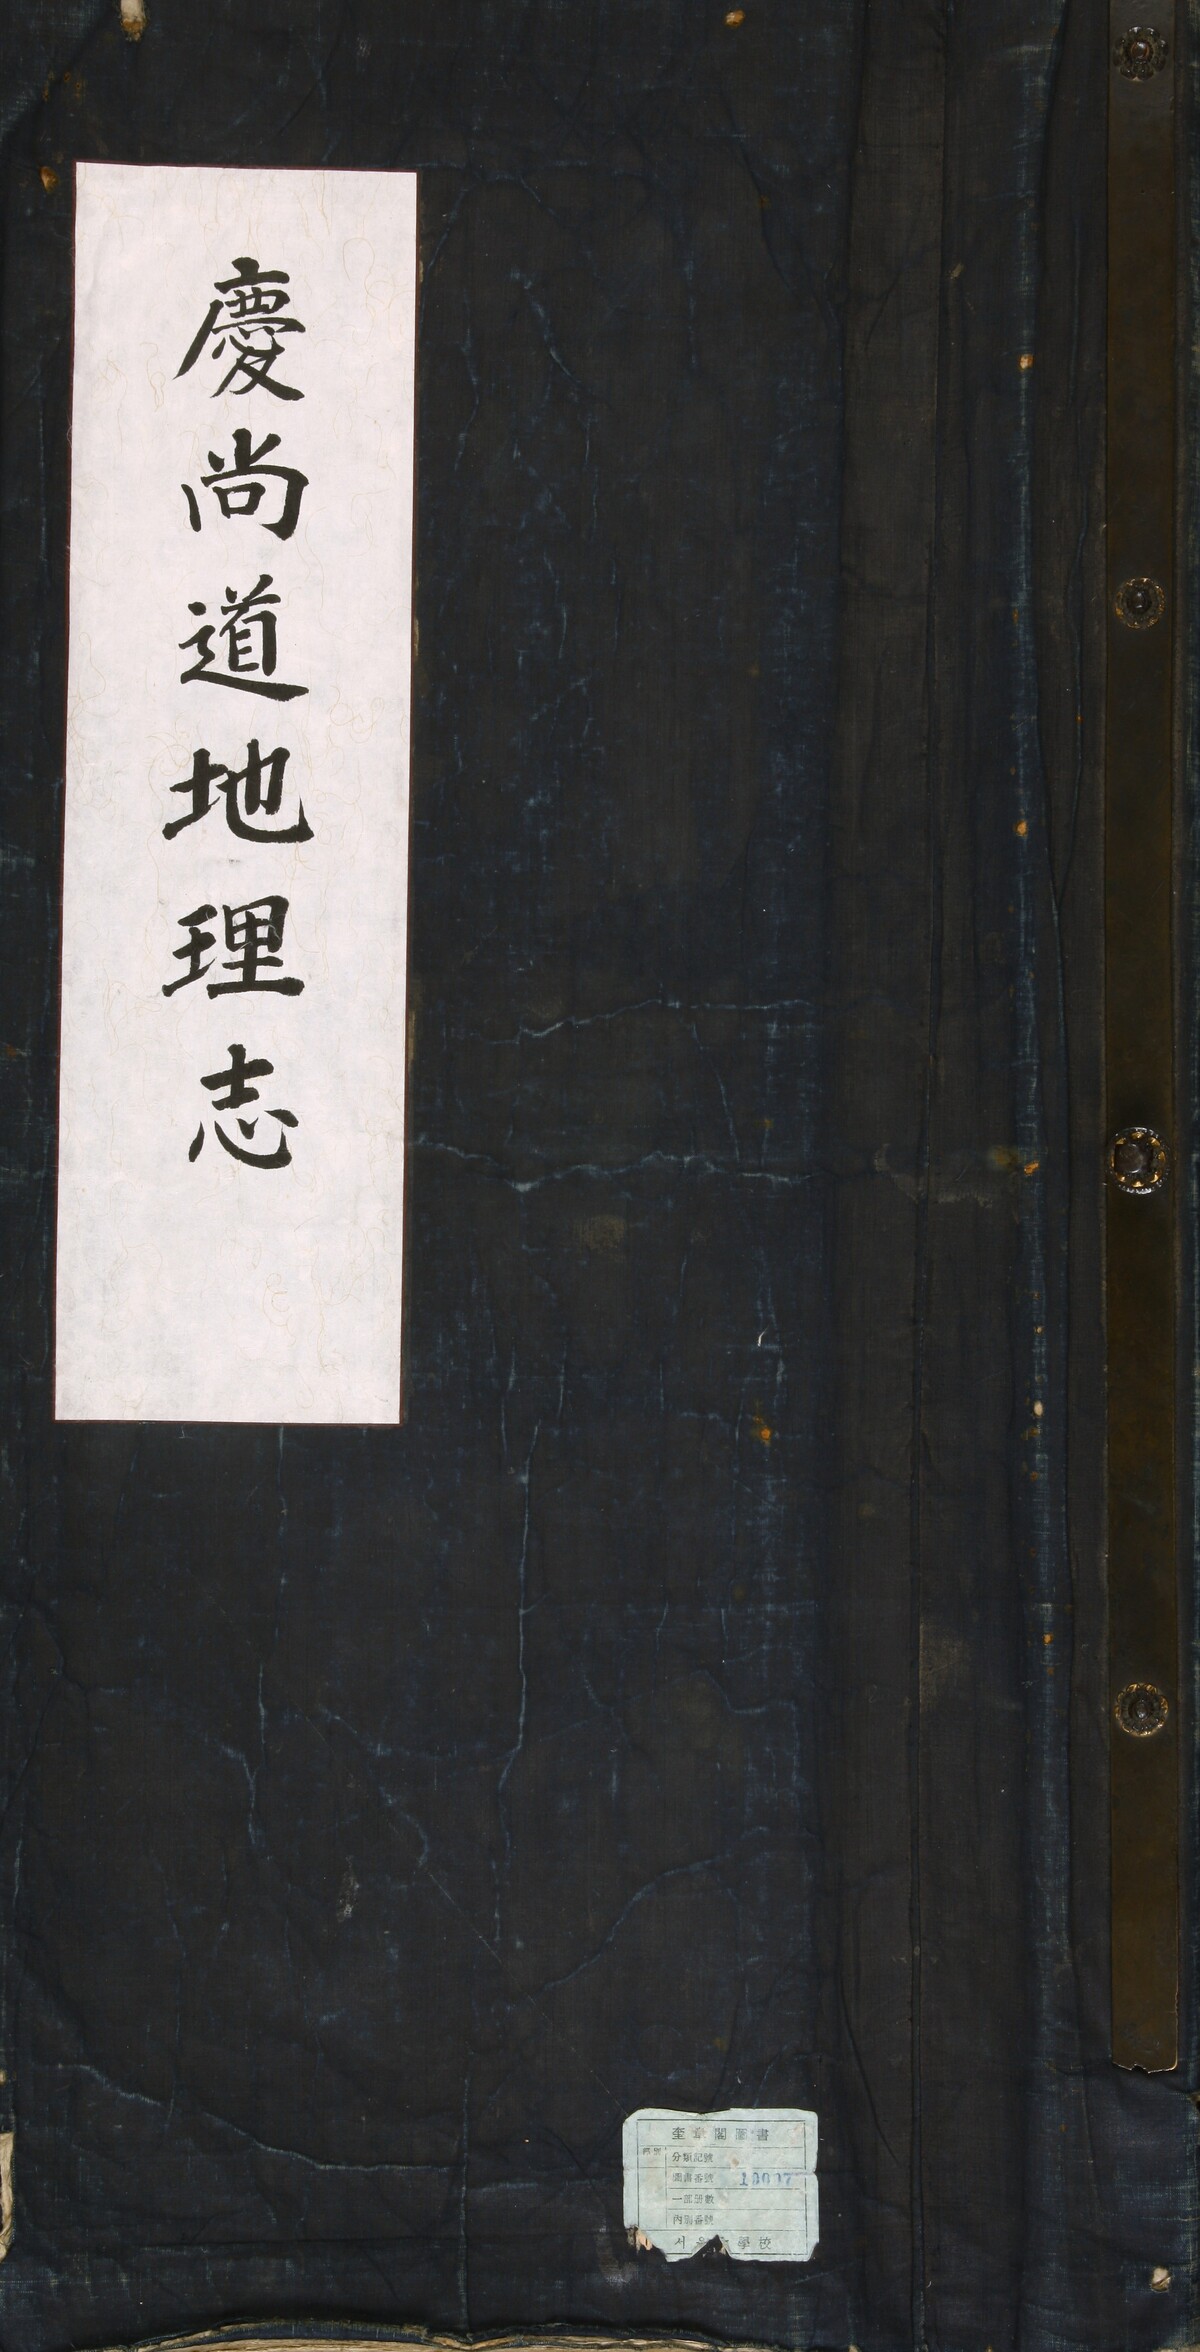 慶尚道地理志
奎章閣圖書
分類記號
圖書番號 10007
一部冊數
內別番號
서울大學校